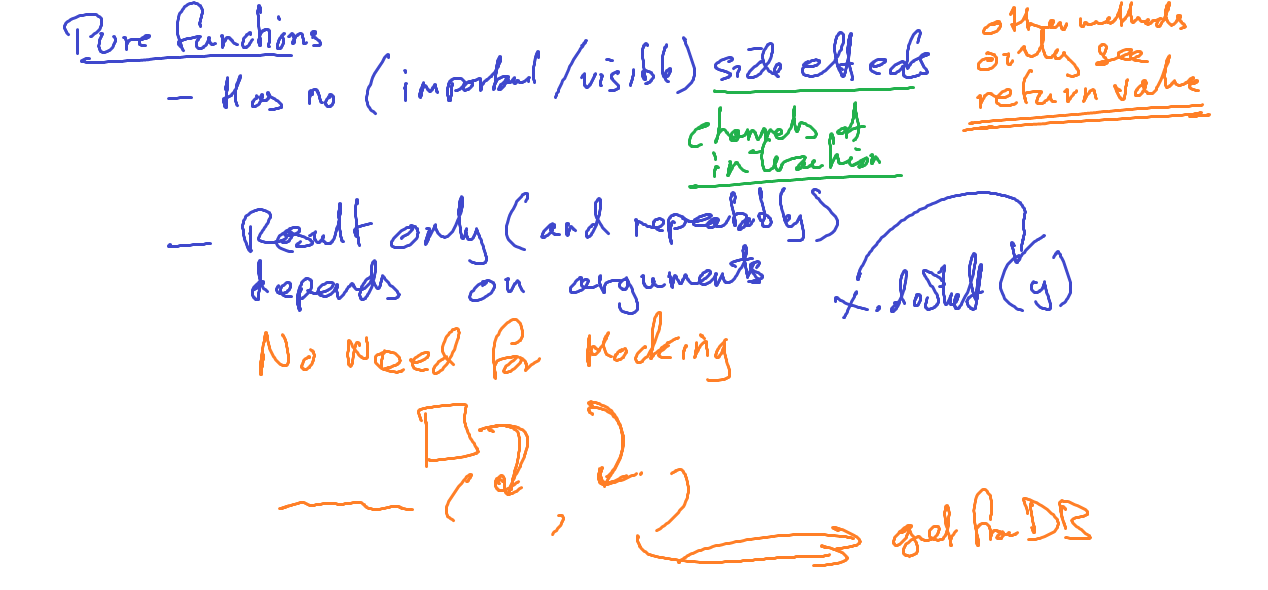 Pure functions
- Has no (important/visible) side effects
other methods
only see
return value
channels of
interaction
- Result only (and repeatably)
depends on arguments
x.doStuff(y)
No Need for Mocking
( , )
get from DB